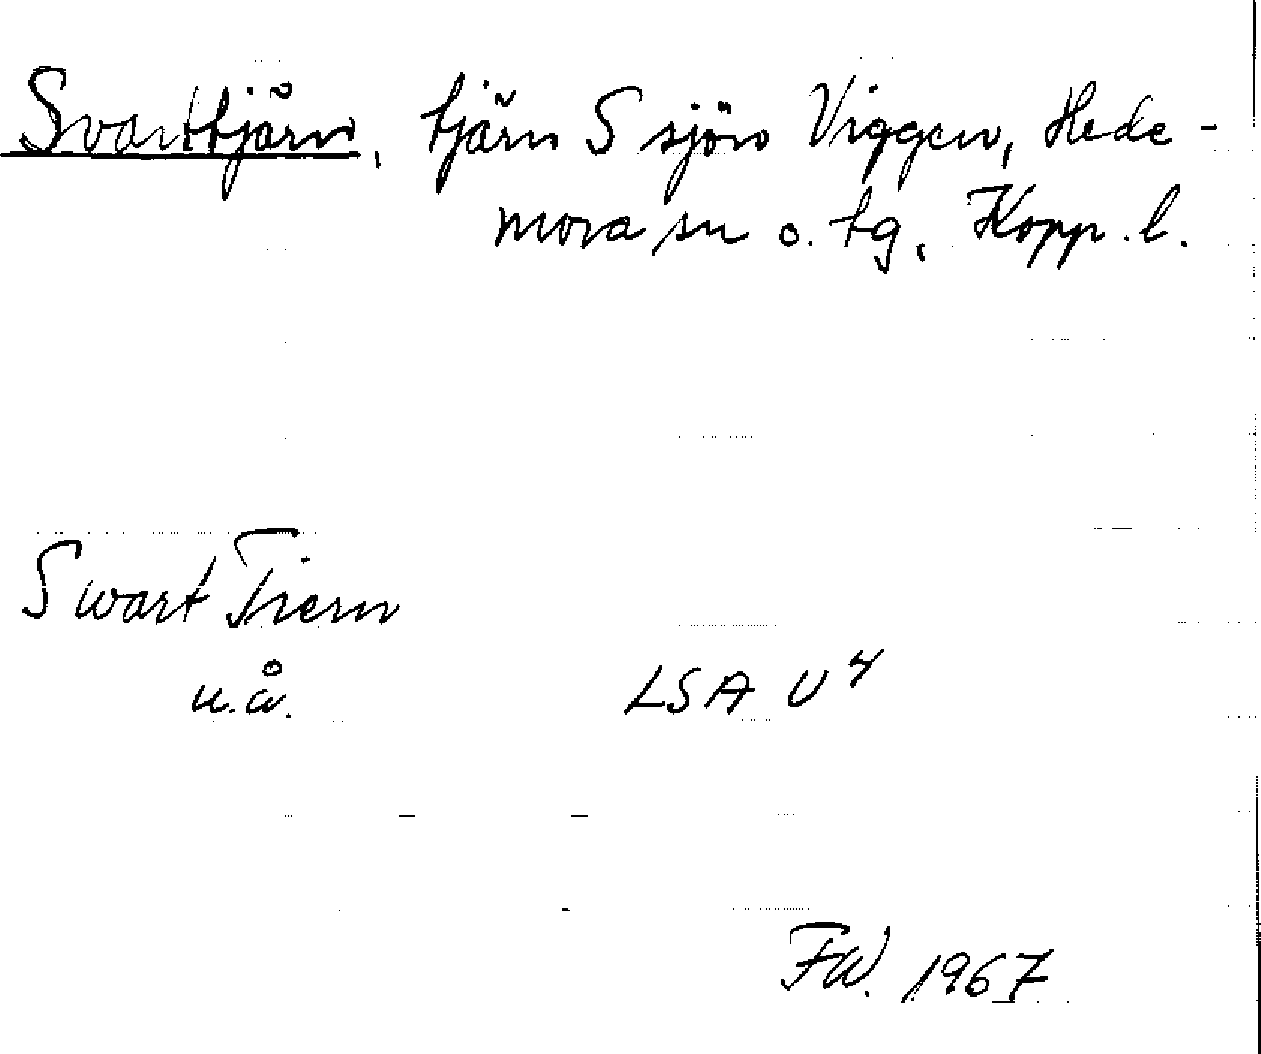 Svarttjärn, tjärn S sjön Viggen, Hede-
mora sn o. tg, Kopp. l.
Swart Tiern
u.å. LSA U⁴
FW. 1967